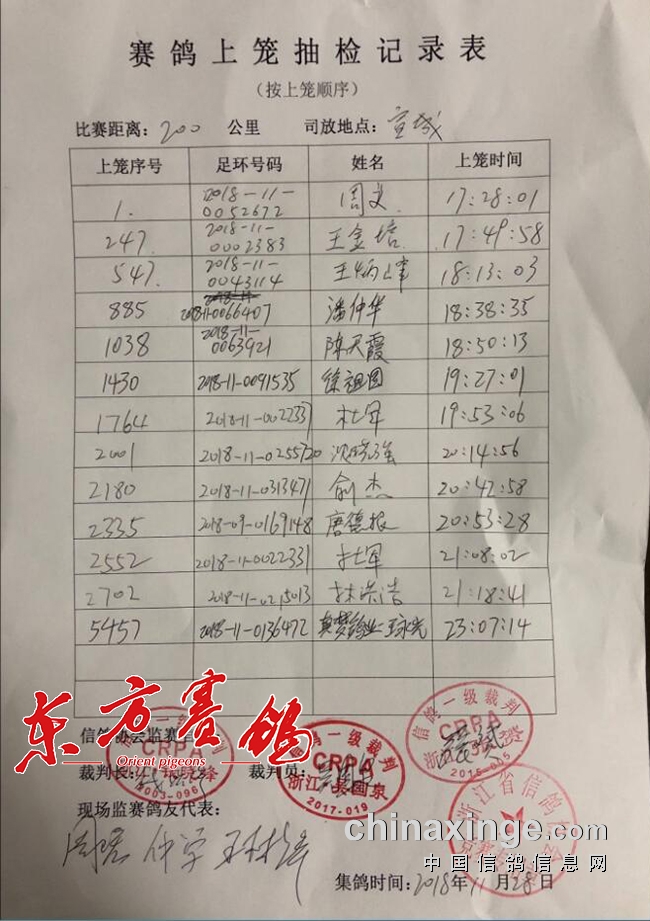 赛鸽上笼抽检记录表
（按上笼顺序）
比赛距离：200 公里 司放地点：宣城
上笼序号 足环号码 姓名 上笼时间
1. 2018-11-0052672 周文 17:28:01
247 2018-11-0002383 王金培 17:49:58
547 2018-11-0043114 王炳峰 18:13:03
885 2018-11-0066407 潘仲华 18:38:35
1038 2018-11-0063921 陈天霞 18:50:13
1430 2018-11-0091535 徐祖国 19:27:01
1764 2018-11-0022337 杜军 19:53:06
2001 2018-11-0255720 沈晓强 20:14:56
2180 2018-11-0313471 俞杰 20:42:58
2335 2018-09-0169148 唐德振 20:53:28
2552 2018-11-0022331 杜军 21:08:02
2702 2018-11-0215013 林洪浩 21:18:41
5457 2018-11-0136472 王永光 23:07:14
东方赛鸽
Orient pigeons
信鸽协会监赛
信鸽一级裁判
CRPA
2003-096
一级裁判
CRPA
浙江 吴国泉
2017-019
信鸽一级裁判
CRPA
浙江
2015-005
裁判长： 裁判员：
浙江省信鸽
现场监赛鸽友代表：
chinaxinge.com
中国信鸽信息网
集鸽时间：2018年11月28日